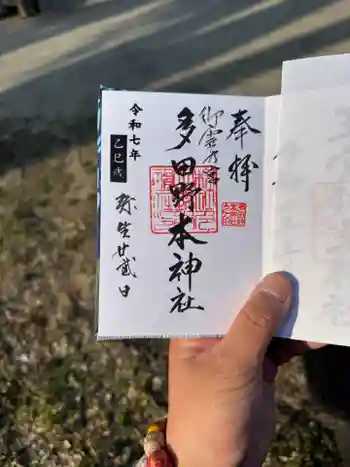 奉拝
御霊乃宮
多田野本神社
令和七年
乙巳歳
弥生廿弐日